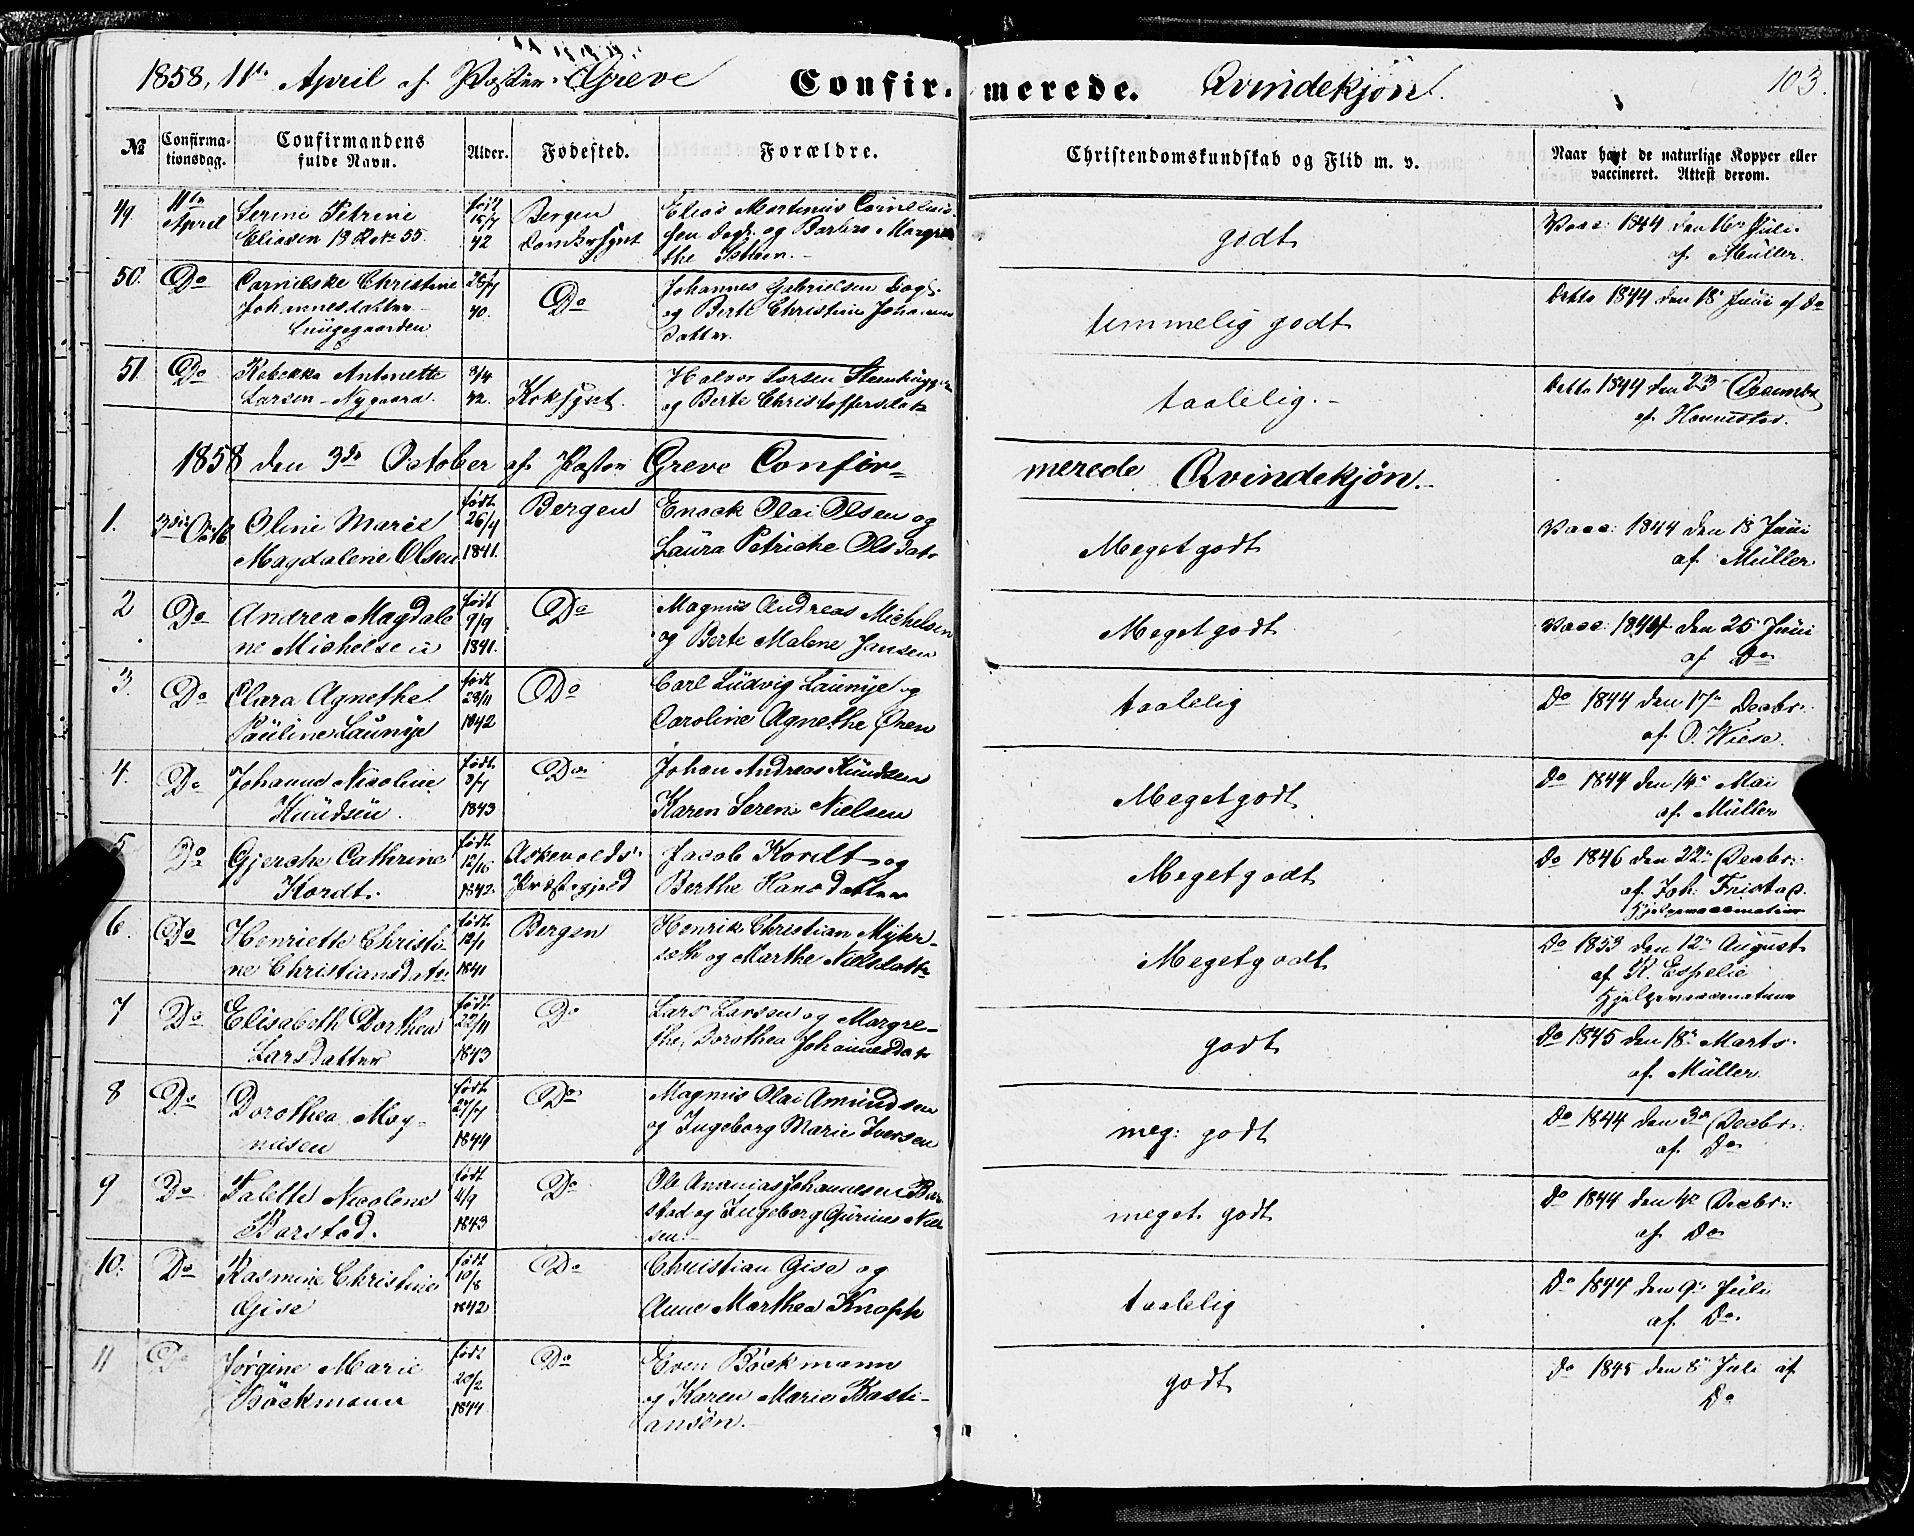 1858, 11te April af Pastor Greve Confirmerede. Qvindekjøn. 103.
№ Confirmationsdag. Confirmandens fulde Navn. Alder. Fødested. Forældre. Christendomskundskab og Flid m. v. Naar havt de naturlige Kopper eller vaccineret. Attest derom.
49 11te April Serine Petrine
Eliasen
født 15/7 42
Bergen
Elias Martinus Cornelius-
sen og Barbra Margre
the
godt
Vacc: 1844 den Juli
af Müller.
50. Do Cornelske Christine
Johannesdatter
Lungegaarden
26/7 40.
Do
Johannes Gabrielsen
og Berte Christine Johannes
Datter.
temmelig godt
Detto 1844 den 18 Juni af Do
51 Do Rebekka Antonette
Larsen - Nygaard.
3/4 42.
Korskyrk.
Halvor Larsen Steenhugger
og Berte Christoffersdatr
taalelig.-
Detto 1844 den 23 Decembr
af
1858 den 3de October af Pastor Greve Confir=
merede Qvindekjøn.-
1. 3die Octb Oline Marie
Magdalene Olsen
født 26/7 1841.
Bergen
Enock Olai Olsen og
Laura Petriche Olsdatr
Meget godt
Vacc: 1844 den 18 Juni
af Müller
2 Do Andrea Magdale
ne Michelsen
født 9/9 1841.
Do
Magnus Andreas Michelsen
og Berte Malene Jansen
Meget godt
Vacc: 1844 den 25 Juni
af Do
3. Do Clara Agnethe
Pauline Launye
født 28/11 1842
Do
Carl Ludvig Launye og
Caroline Agnethe Øren
taalelig
Do 1844 den 17de Decbr.
af O. Wiese.
4. Do Johanne Nicoline
Knudsen.
født 3/7 1843
Do
Johan Andreas Knudsen
Karen Serene Nielsen
Meget godt
Do 1844 den 14 Mai
af Müller
5 Do Gjerche Cathrine
Kordt.
født 1842.
Askevolds
Præstegjeld
Jacob Kordt og
Berthe Hansdatter
Meget godt
Do 1846 den 22 Decbr:
af Joh: Fristad.
Hjelpevaccinateur
6. Do Henriette Christi-
ne Christiansdatr.
født 12/1 1841
Bergen
Henrik Christian Myhr-
seth og Marthe Nielsdattr
Meget godt
Do 1853 den 12 August
af K. Espelie
Hjelpevaccinateur
7 Do Elisabeth Dorthea
Larsdatter
født 22/11 1843
Do
Lars Larsen og Margre-
the, Dorothea Johannesdatr
godt
Do 1845 den 18 Marts.
af Müller.
8 Do Dorothea Mag-
nusen
født 27/7 1844
Do
Magnus Olai Amundsen
og Ingeborg Marie Iversen
meg: godt
Do 1844 den 3de Decbr:
af Do
9 Do Talette Nicolene
Barstad.
født 4/9 1843
Do
Ole Ananias Johannesen Bar
stad og Ingeborg Gurine Niel
sen.
meget godt
Do 1844 den 4de Decbr:
af Do
10. Do Rasmine Christine
Gise
født 10/8 1842
Do
Christian Gise og
Anne Marthea Knoph
taalelig
Do 1844 den 9 Juli
af Do.
11 Do Jørgine Marie
Böckmann
født 20/2 1844.
Do
Even Böckmann
og Karen Marie Basti-
ansen.
godt
Do 1845 den 8 Juli af
Do